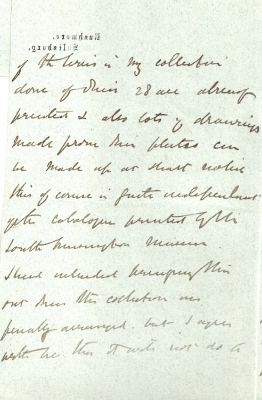 Rushmore,
Salisbury.
of the series in my collection
done of this 28 are already
printed & also lots of drawings
made from this plates can
be made up at short notice
this of course is quite independent
of the catalogue printed by the
South Kensington Museum.
I had intended bringing this
out when the collection was
finally arranged. but I agree
with you that it will not do to